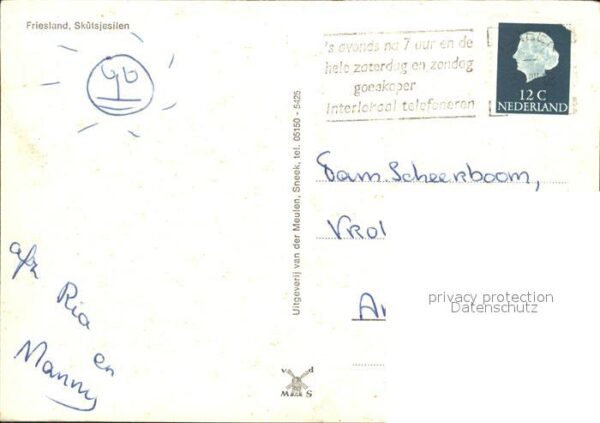 Friesland, Skûtsjesilen
's avonds na 7 uur en de
hele zaterdag en zondag
goedkoper
interlokaal telefoneren
12 C
NEDERLAND
Fam. Scheerboom,
Uitgeverij van der Meulen, Sneek, tel. 05150 - 5425
afz Ria
en
Manny
v d
M S
privacy protection
Datenschutz